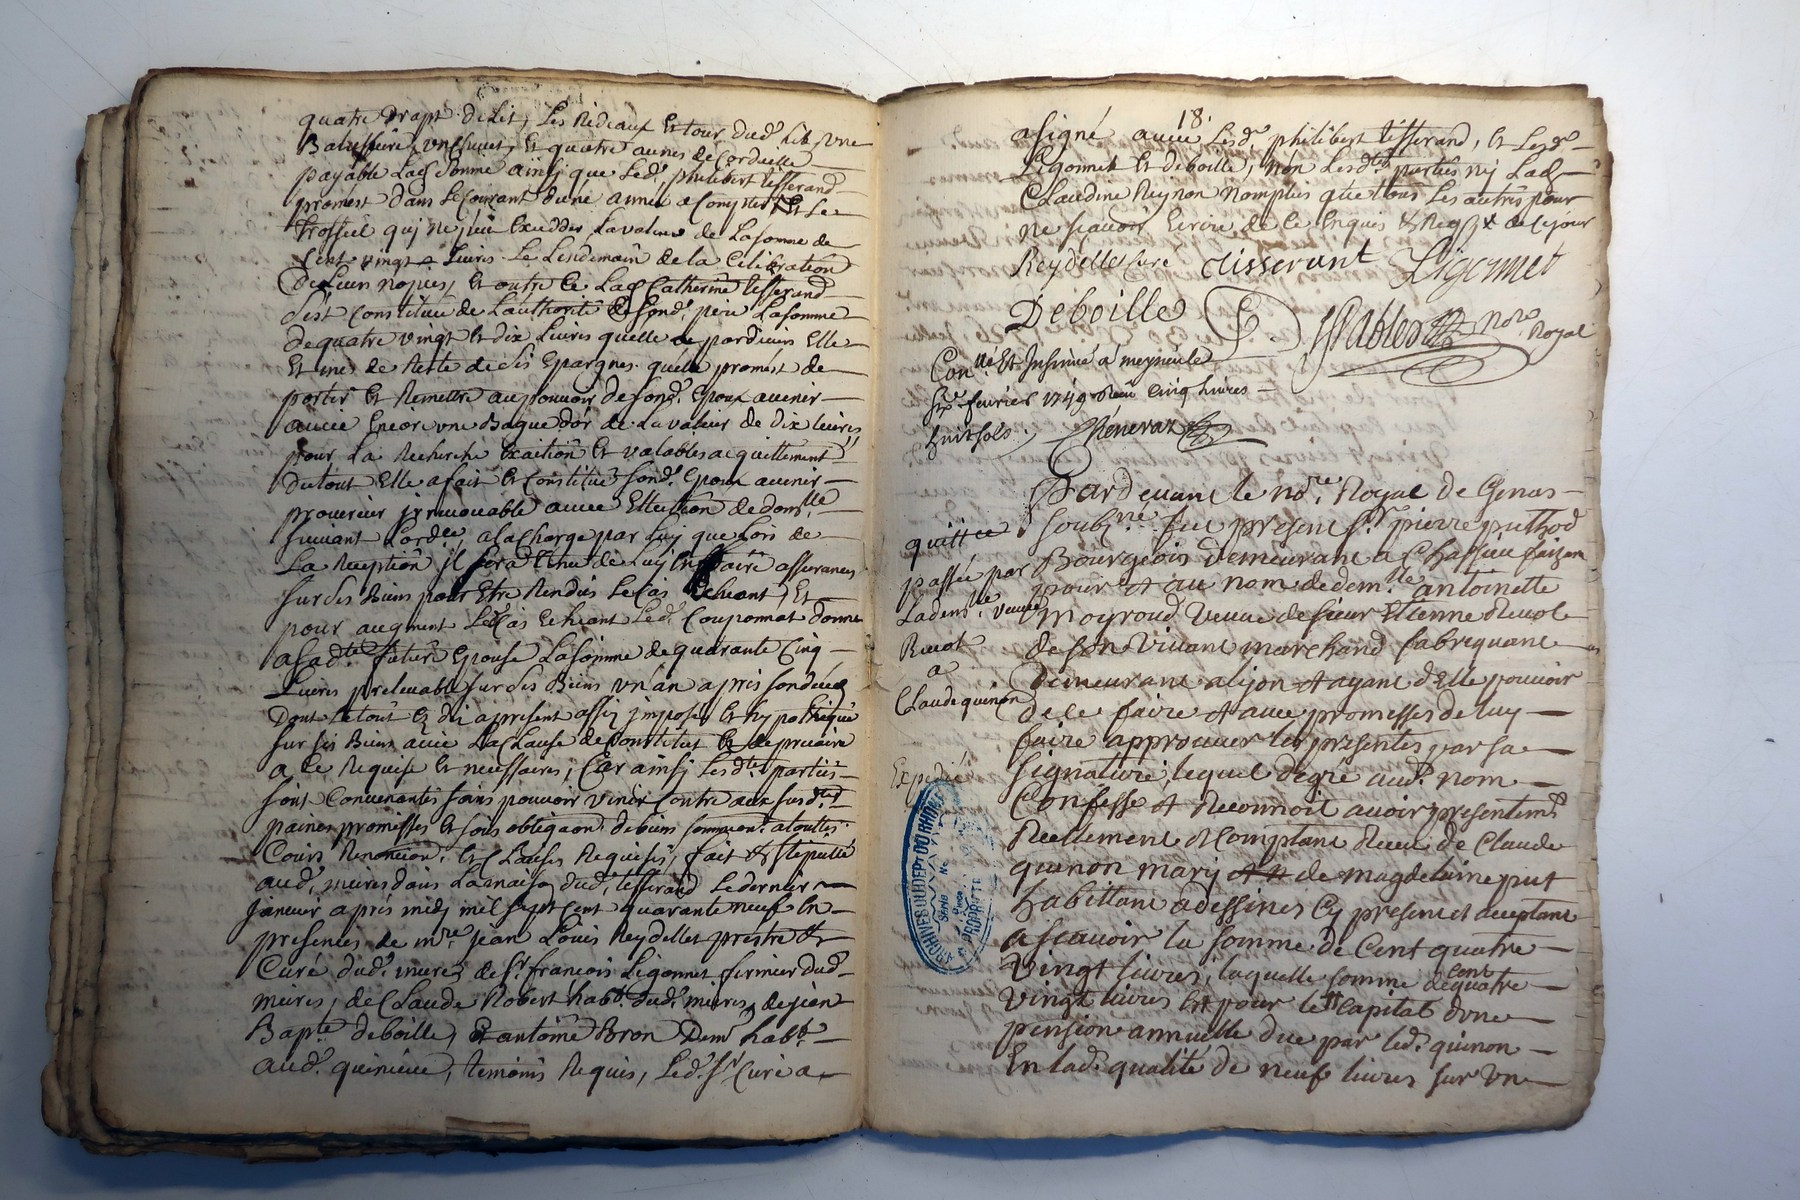 quatre Drapt de Lit, Les Rideaux Et tour dud. Lit une
payable Lad. somme ainsy que Led. philibert tisserand
promest dans Le Courant dune année a Compter Et Le
trossel qui ne peut Excedder La valeur de La somme de
Cent vingt Livres Le Lendemain de la Celebration
De Leur nopces, Et outre Ce Lad. Catherine tisserand
s'est Constituée de L'authorité de sond. pere La somme
de quatre vingt Et dix Livres quelle
de Reste de ses Epargnes quelle promest de
porter Et Remettre au pouvoir de sond. Epoux avenir
avec Encor une Bague d'or de La valeur de dix Livres
pour La Recherche Exaction Et valables acquittement
du tout Elle a fait Et Constitué sond. Epoux avenir
procureur jrrevocable avec Ellection de domlle
suivant Lordce, a la Charge par Luy que Lors de
La Reception jl sera tenu de Luy En faire assurances
sur ses Biens pour Etre Rendus Le Cas Echeant, Et
pour augment Led. Cas Echeant Led. Couponnat donne
a sadte. future Epouse La somme de quarante Cinq
Livres prelevable sur ses Biens un an apres son deces
Dont Le tout Est des apresent assis jmposé Et hypothequé
sur ses Biens avec La Clause de Constitut Et de precaire
a Ce Requise Et necessaires, Car ainsy Lesdtes. parties
sont Convenantes sans pouvoir venir Contre aux susdtes
paines promesses Et sous obligaon. de biens soumission. a toutes
Cours Renonciaon. Et Clauses Requises, fait & stipullé
aud. mieres dans La maison dud. tisserand Le dernier
Janvier aprés midy mil sept Cent quarante neuf En
presences de mre. Jean Louis Reydellet prestre &
Curé dud. mieres de Sr. françois Ligonnet fermier dud.
mieres, de Claude Robert habt. dud. mieres, de jean
Bapte deboille, Et antoine Bron Demt habt.
aud. quinieue, temoins Requis, Led. Sr. Curé a
18
a signé avec Lesd. philibert tisserand, Et Lesd.
Ligonnet Et deboille, non Lesdtes parties ny Lad.
Claudine Reynon non plus que tous Les autres pour
ne sçavoir Ecrire de Ce Enquis & Requis de Ce jour
Reydellet Curé tisserant Ligonnet
Deboille
Nore. Royal
Conllé Et Insinué a meyzieule
fevrier 1749 Receu Cinq livres
huit sols. Chénevaz
Pardevant le nore. Royal de Genas
soubzne. fut present Sr. pierre puthod
Bourgeois demeurant a Chassieu faizant
pour et au nom de demlle. antoinette
moyroud veuve de sieur Etienne Revol
de son vivant marchand fabriquant
demeurant a lion et ayant d'elle pouvoir
de le faire et avec promesses de luy
faire approuver les presentes par sa
signature, lequel degré aud. nom
Confesse et Reconnoit avoir presentement
Reellement et Comptant Receu de Claude
quinon mary de magdelaine put
habittant a dessines Cy present et acceptant
a sçavoir la somme de Cent quatre
vingt livres, laquelle somme de Cent quatre
vingt livres Est pour le Capital d'une
pension annuelle due par led. quinon
En lad. qualité de neuf livres sur une
quittce
passée par
Lademlle veuve
Revol
a
Claude quinon
Expedié
ARCHIVES DU DEPT DU RHONE
Série
No
PROPRIETE